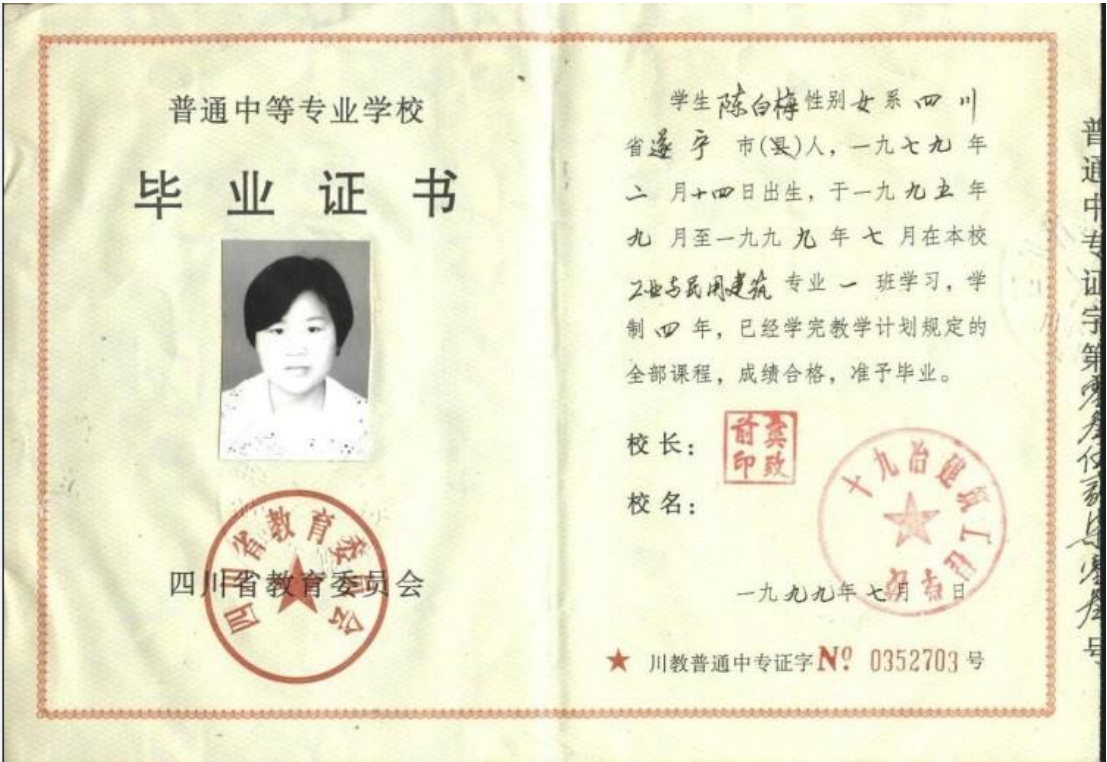 普通中等专业学校
毕业证书
四川省教育委员会
四川省教育委员会
学生陈白梅性别女系四川
省遂宁 市(县)人，一九七九年
二月十四日出生，于一九九五年
九月至一九九九年七月在本校
工业与民用建筑专业一班学习，学
制四年，已经学完教学计划规定的
全部课程，成绩合格，准予毕业。
校长：
龚致前印
校名：
十九冶建筑工程
一九九九年七月 日
★ 川教普通中专证字№ 0352703号
普通中专证字第零叁
号